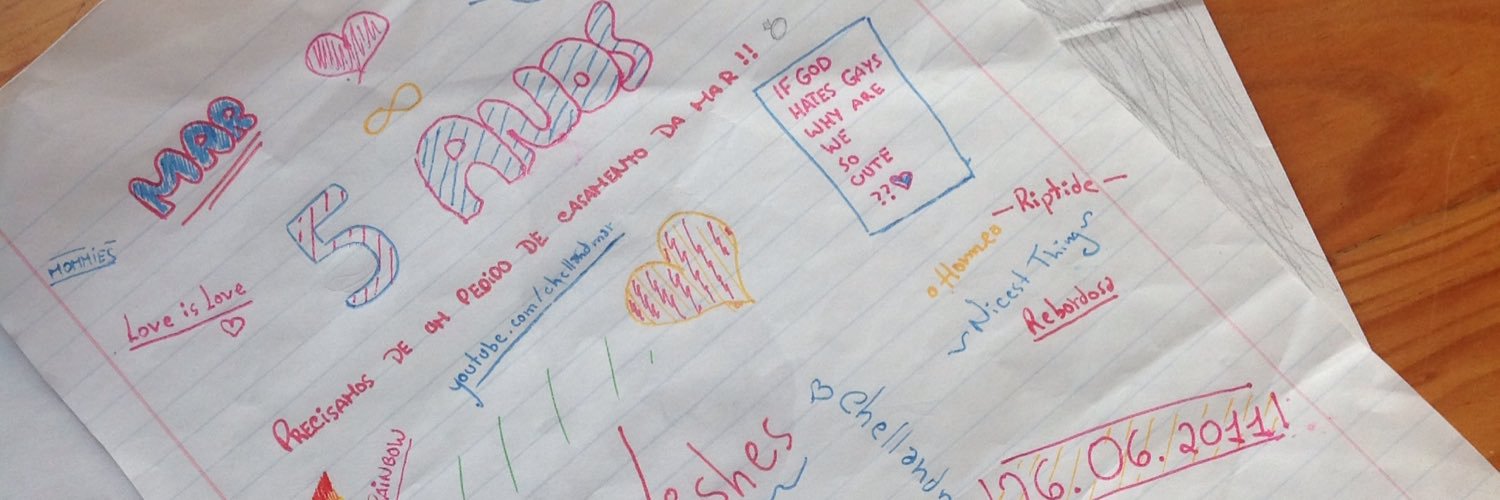 MAR
5 ANOS
MOMMIES
Love is Love
PRECISAMOS DE UM PEDIDO DE CASAMENTO DA MAR!!
youtube.com/chellandmar
IF GOD
HATES GAYS
WHY ARE
WE
SO
CUTE
??
Riptide
Homeo
Nicest Thing
Rebordosa
RAINBOW
06.06.2011